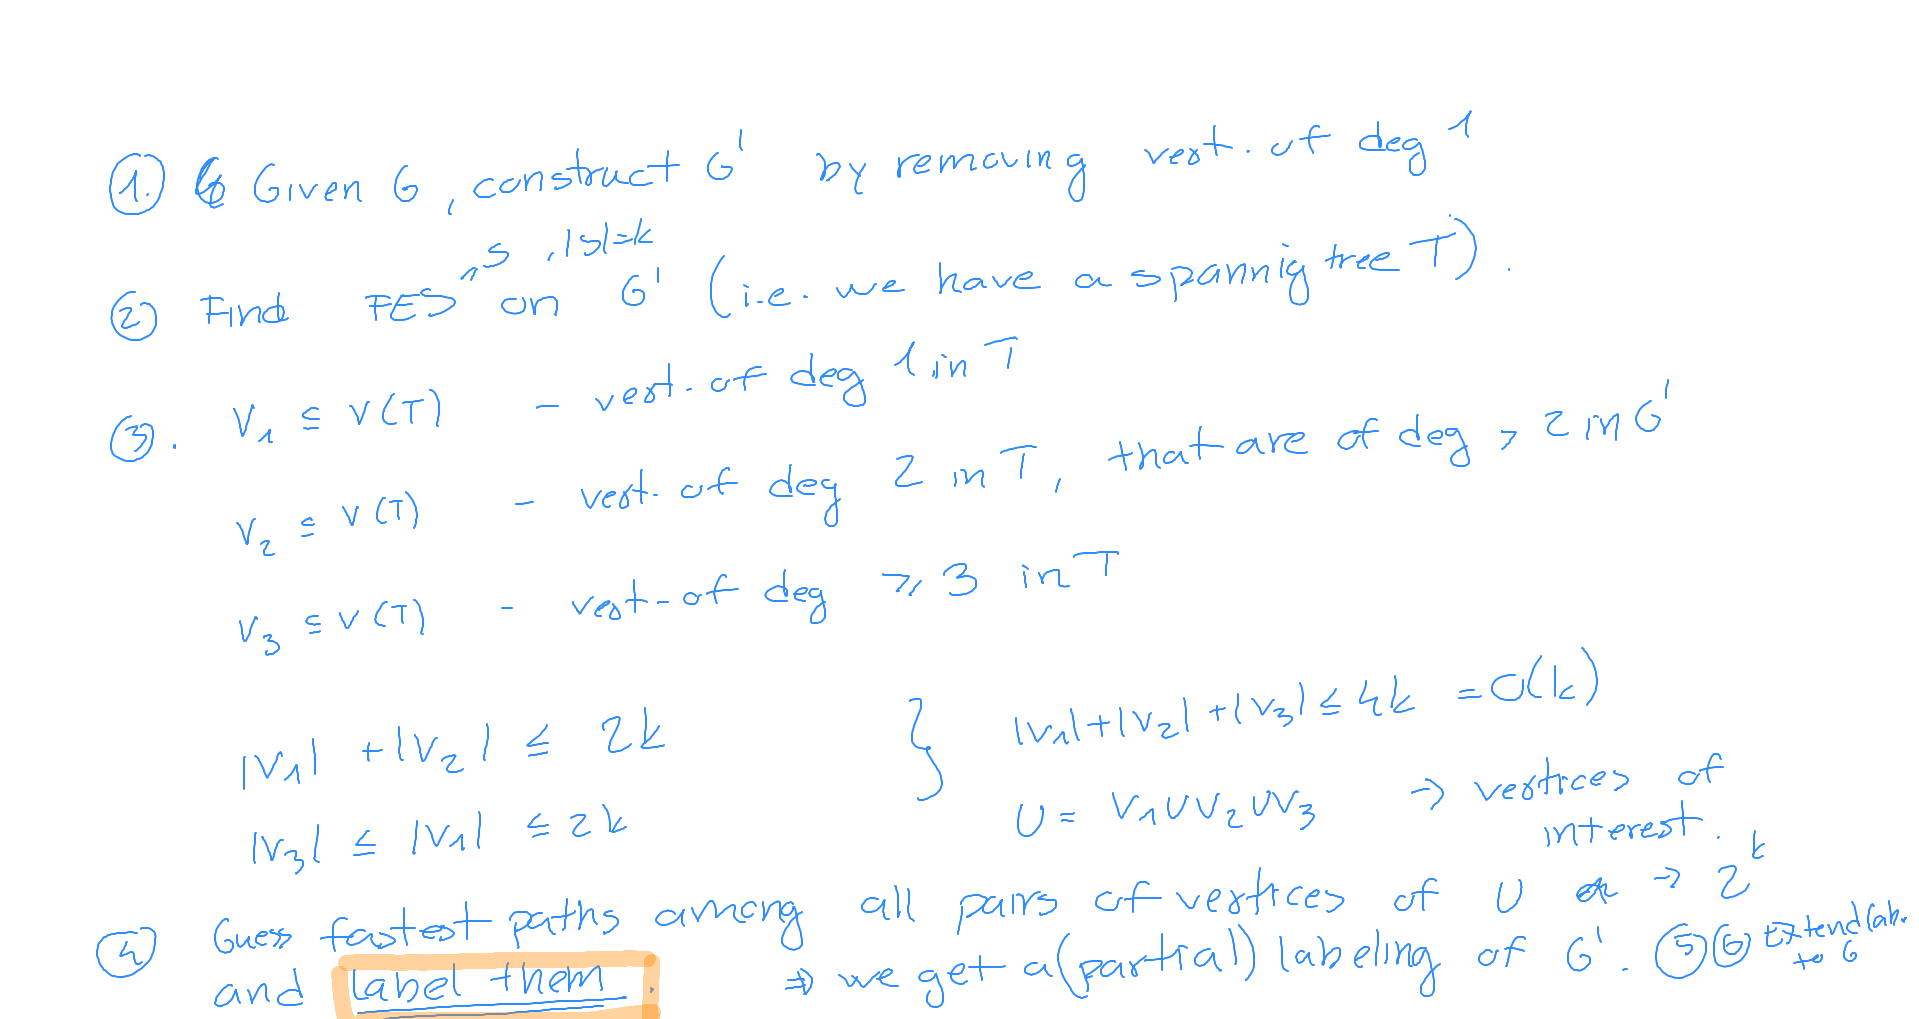 1. Given G, construct G' by removing vert. of deg 1
2 Find FES on G' (i.e. we have a spannig tree T).
, S, |S|=k
3. V1 ⊆ V(T) - vert. of deg 1 in T
V2 ⊆ V(T) - vert. of deg 2 in T, that are of deg > 2 in G'
V3 ⊆ V(T) - vert. of deg ≥ 3 in T
|V1| + |V2| ≤ 2k
|V3| ≤ |V1| ≤ 2k
} |V1| + |V2| + |V3| ≤ 4k = O(k)
U = V1 ∪ V2 ∪ V3 → vertices of
interest.
4 Guess fastest paths among all pairs of vertices of U → 2^k
and label them. ⇒ we get a (partial) labeling of G'. 5 6 Extend lab.
to G